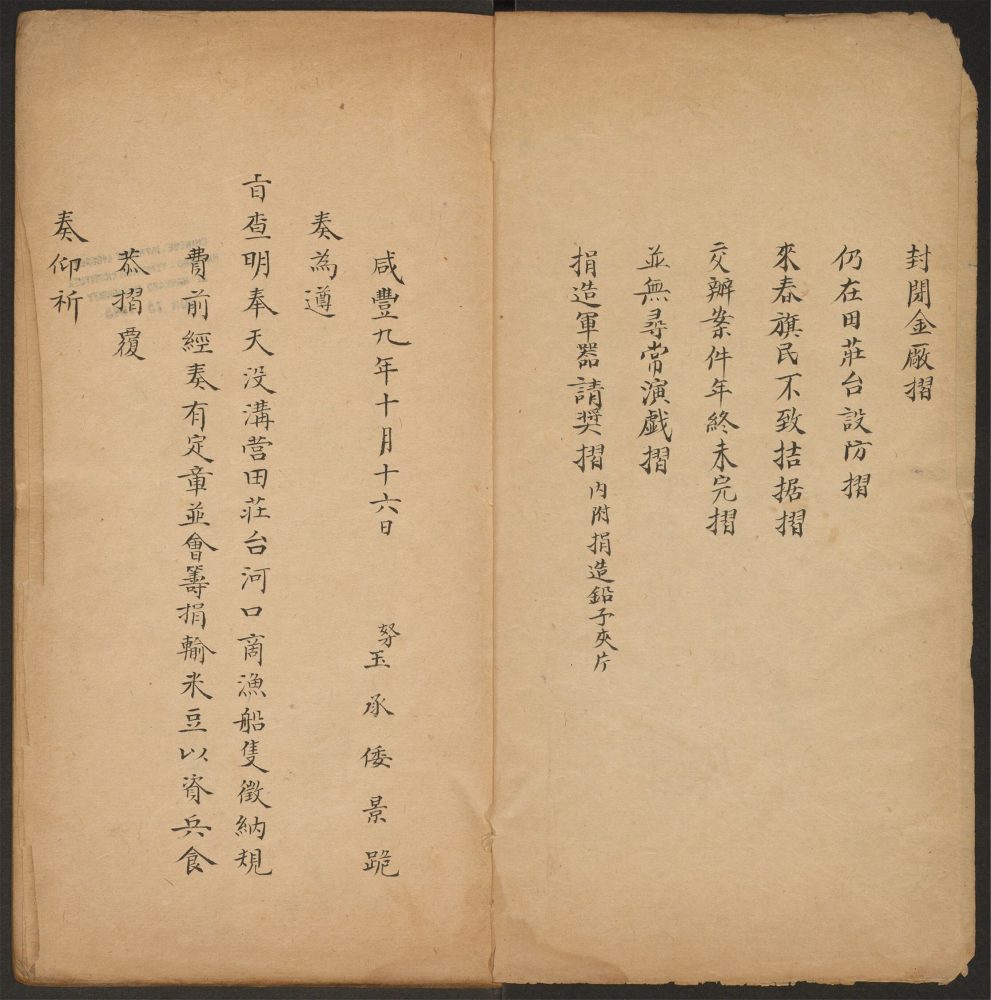 封閉金廠摺
仍在田莊台設防摺
來春旗民不致拮据摺
交辦案件年終未完摺
並無尋常演戲摺
捐造軍器請奬摺 內附捐造鉛子夾片
咸豐九年十月十六日 玉 承 倭 景 跪
奏為遵
旨查明奉天没溝營田莊台河口商漁船隻徵納規
費前經奏有定章並會籌捐輸米豆以資兵食
恭摺覆
奏仰祈